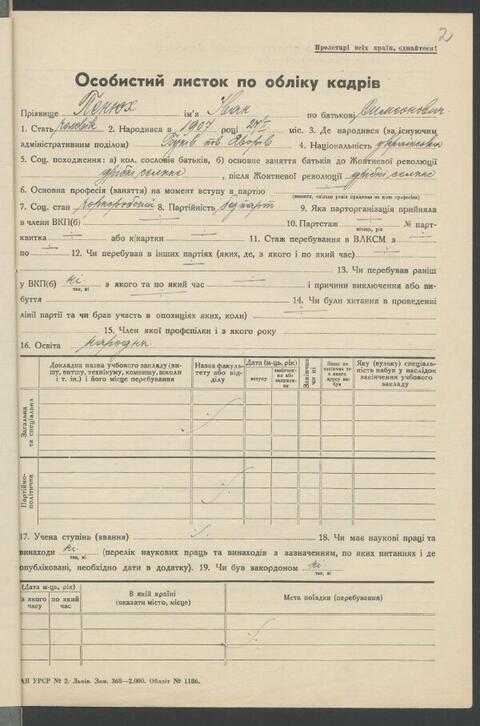 2
Пролетарі всіх країн, єднайтеся!
Особистий листок по обліку кадрів
Прізвище Пенюх ім'я Іван по батькові Симеонович
1. Стать чоловік 2. Народився в 1907 році 24/ міс. 3. Де народився (за існуючим
адміністративним поділом) пов. Яворів 4. Національність українська
5. Соц. походження: а) кол. сословія батьків, б) основне заняття батьків до Жовтневої революції
дрібні селяне, після Жовтневої революції дрібні селяне
6. Основна професія (заняття) на момент вступу в партію
(вкажіть, скільки років працював на цією професією)
7. Соц. стан 8. Партійність безпарт 9. Яка парторганізація прийняла
в члени ВКП(б) 10. Партстаж № парт-
місяць, рік
квитка або к/картки 11. Стаж перебування в ВЛКСМ з
по 12. Чи перебував в інших партіях (яких, де, з якого і по який час)
13. Чи перебував раніш
у ВКП(б) ні з якого та по який час і причини виключення або ви-
так, ні
буття 14. Чи були хитання в проведенні
лінії партії та чи брав участь в опозиціях яких, коли)
15. Член якої профспілки і з якого року
16. Освіта народна
Докладна назва учбового закладу (ви-
шу, витушу, технікуму, комвишу, школи
і т. ін.) і його місце перебування
Назва факуль-
тету або від-
ділу
Дата (м-ць, рік)
вступу
закінчен-
ня або
залишен-
ня
Закінчив
чи ні
Якщо не
закінчив то
з якого
курсу ви-
був
Яку (вузьку) спеціаль-
ність набув у наслідок
закінчення учбового
закладу
Загальна
та спеціальна
Партійно-
політична
17. Учена ступінь (звання) 18. Чи має наукові праці та
винаходи ні (перелік наукових праць та винаходів з зазначенням, по яких питаннях і де
так, ні
опубліковані, необхідно дати в додатку). 19. Чи був закордоном ні
так, ні
(Дата (м-ць, рік)
з якого
часу
по який
час
В якій країні
(оказати місто, місце)
Мета поїздки (перебування)
АН УРСР № 2. Львів. Зам. 368—2.000. Обліт № 1186.